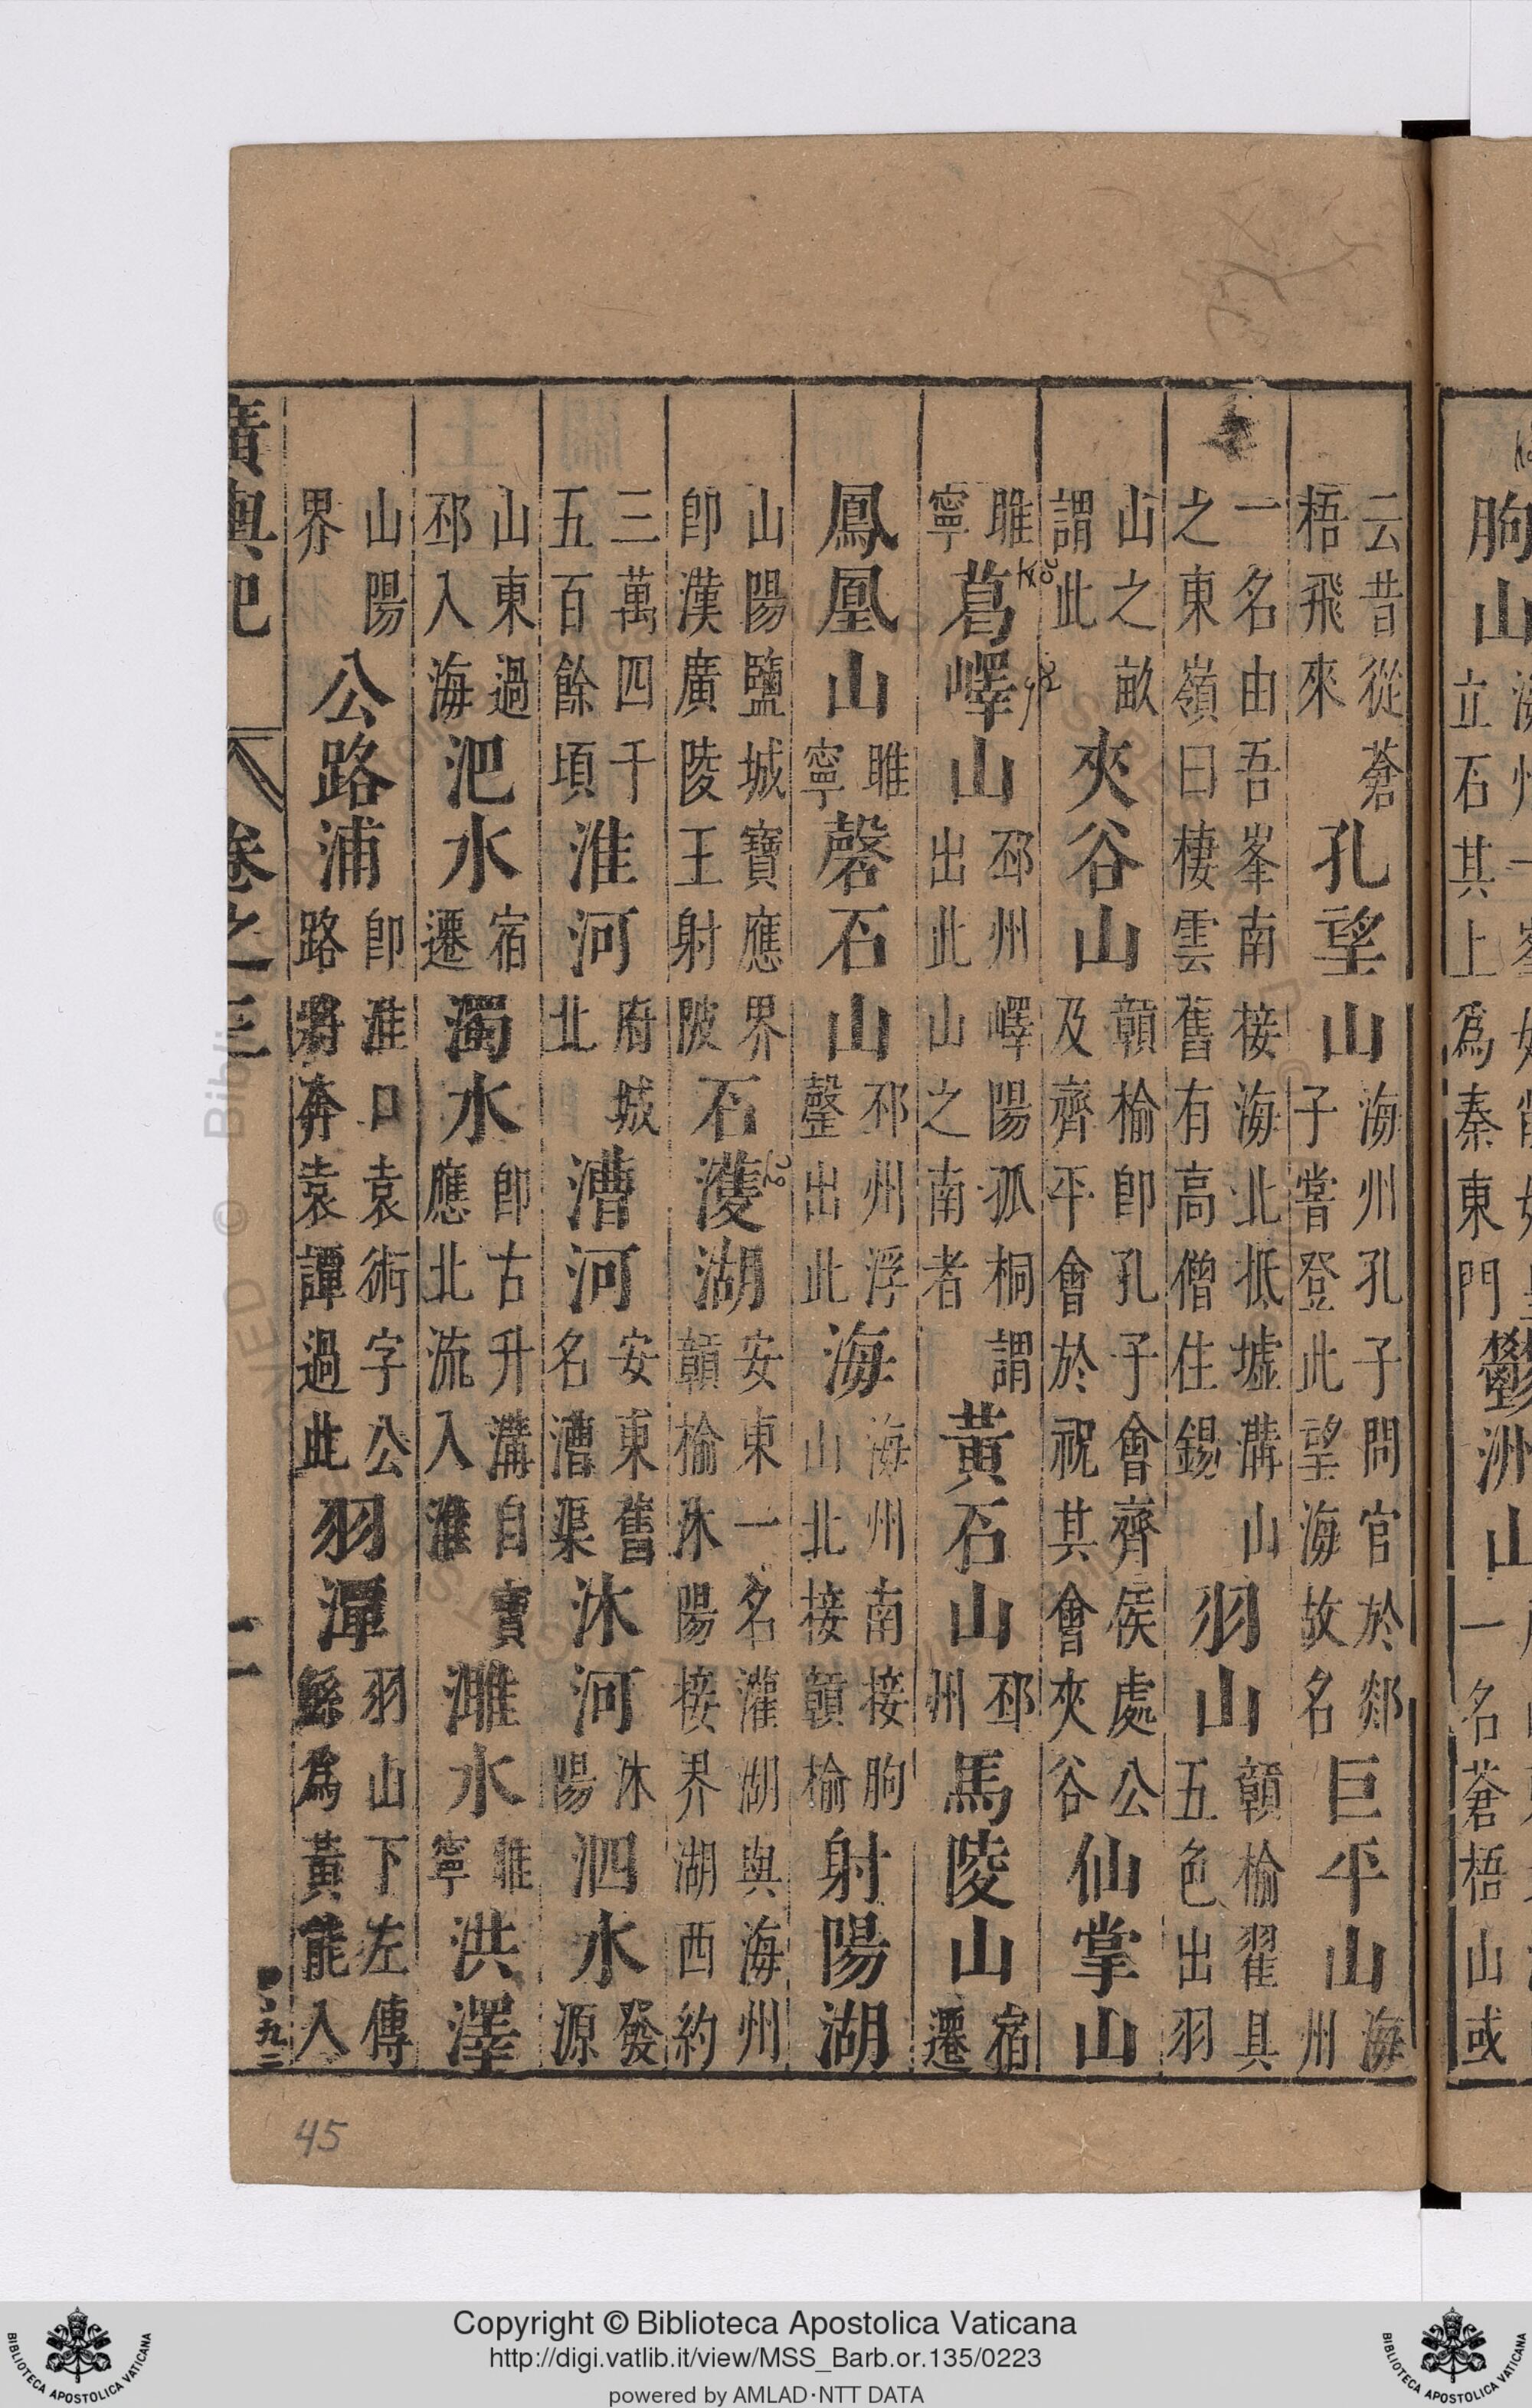 朐山立石其上爲秦東門鬱洲山一名蒼梧山或
云昔從蒼梧飛來孔望山海州孔子問官於郯子嘗登此望海故名巨平山海州
一名由吾峯南接海北抵墟溝山之東嶺曰棲雲舊有高僧住錫羽山贛榆翟具五色出羽
山之畝謂此夾谷山贛榆卽孔子會齊侯處公及齊平會於祝其會夾谷仙掌山
睢寧葛嶧山邳州嶧陽孤桐謂出此山之南者黃石山邳州馬陵山宿遷
鳳凰山睢寧磬石山邳州浮罄出此海海州南接朐山北接贛榆射陽湖
山陽鹽城寶應界卽漢廣陵王射陂石濩湖安東一名灌湖與海州贛榆沭陽接界湖西約
三萬四千五百餘頃淮河府城北漕河安東舊名漕渠沭河沭陽泗水發源
山東過邳入海淝水宿遷濁水卽古升溝自寶應北流入淮濉水睢寧洪澤
山陽界公路浦卽淮口袁術字公路將奔袁譚過此羽潭羽山下左傳鯀爲黃能入
廣輿記 卷之三 二
九二
45
Copyright © Biblioteca Apostolica Vaticana
http://digi.vatlib.it/view/MSS_Barb.or.135/0223
powered by AMLAD·NTT DATA
BIBLIOTECA APOSTOLICA VATICANA
BIBLIOTECA APOSTOLICA VATICANA